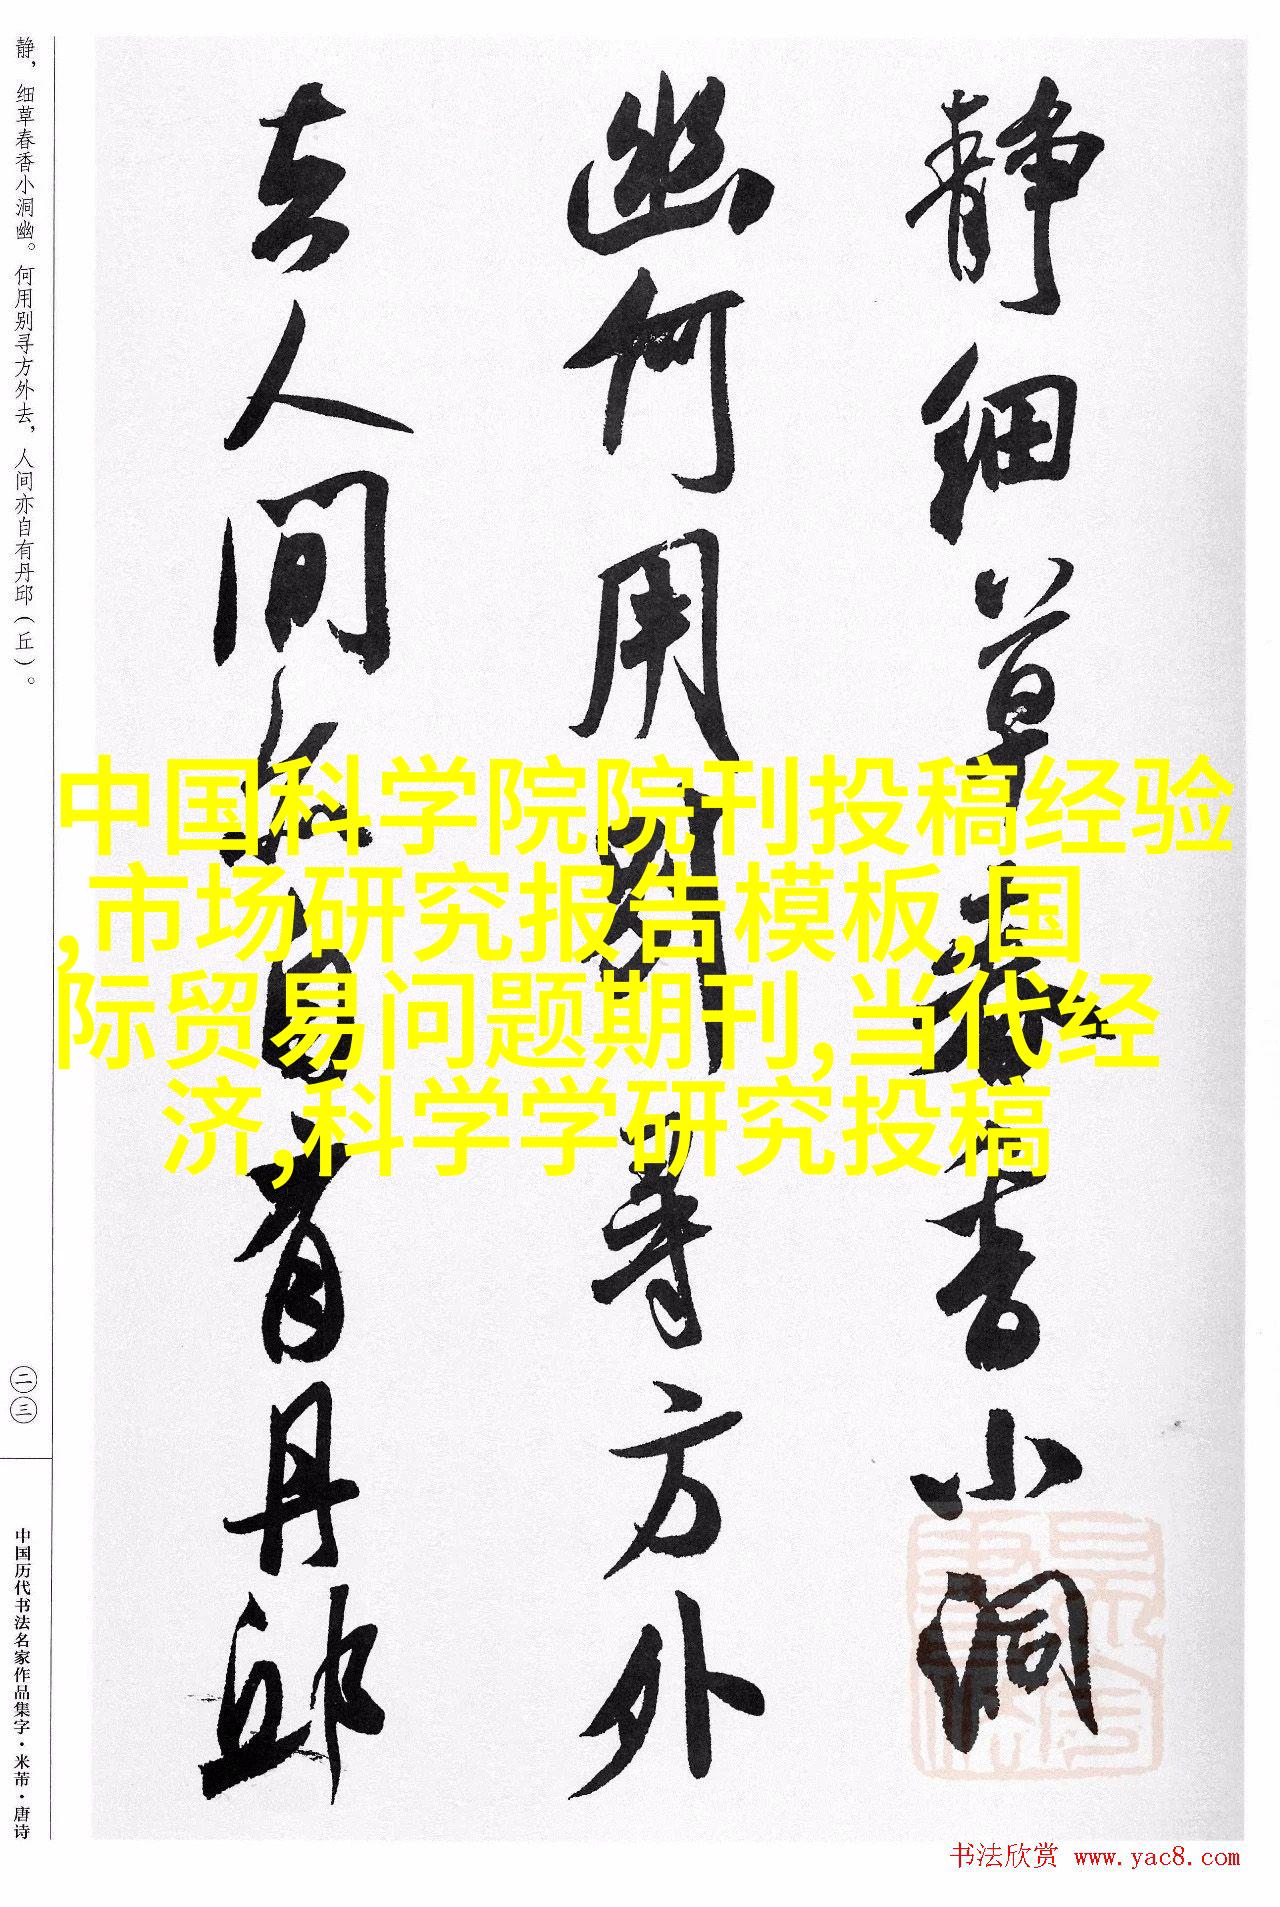 静细草春香小洞
幽何用别寻方外
去人间亦自有丹邱
中国科学院院刊投稿经验
,市场研究报告模板,国
际贸易问题期刊,当代经
济,科学学研究投稿
静，细草春香小洞幽。何用别寻方外去，人间亦自有丹邱（丘）。
二三
中国历代书法名家作品集字·米芾·唐诗
书法欣赏 www.yac8.com